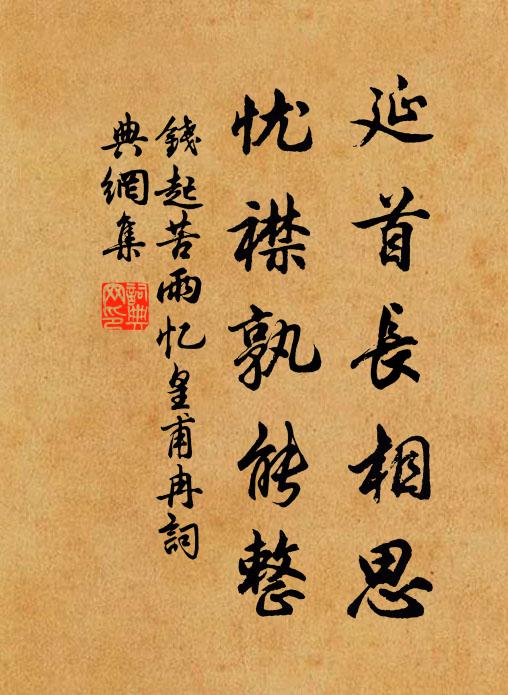 延首長相思
忧襟孰能整
錢起苦雨忆皇甫冉詞
典網集
詞典
网印